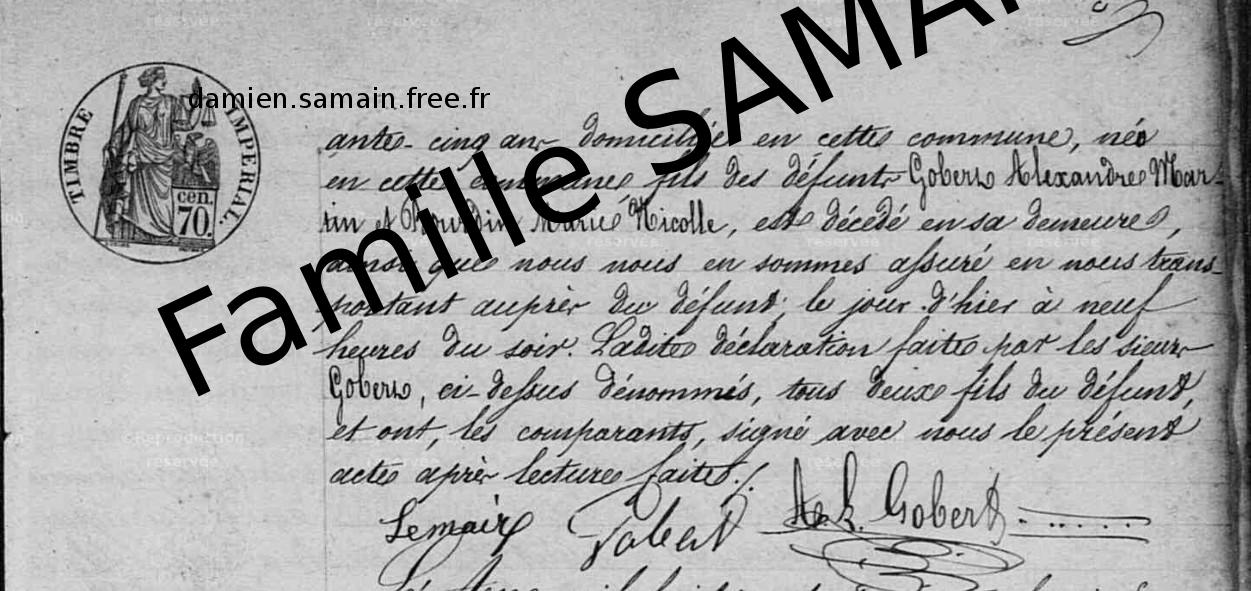 Reproduction réservée
damien.samain.free.fr
Famille SAMA
TIMBRE IMPERIAL.
cen.
70.
ante-cinq ans domicilié en cette commune, né
en cette commune fils des défunts Gobert Alexandre Mar-
tin et Bourdin Marie Nicolle, est décédé en sa demeure,
ainsi que nous nous en sommes assuré en nous trans-
portant auprès du défunt, le jour d'hier à neuf
heures du soir. Ladite déclaration faite par les sieurs
Gobert, ci-dessus dénommés, tous deux fils du défunt,
et ont, les comparants, signé avec nous le présent
acte après lecture faite./.
Lemaire Gobert Gobert